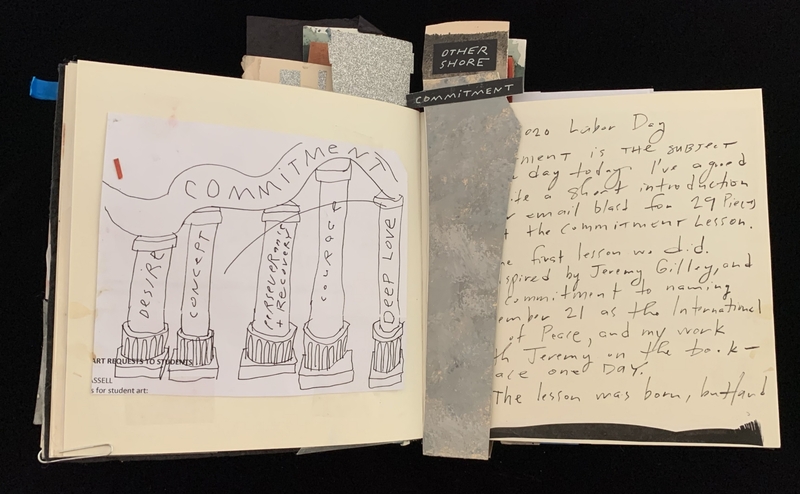 OTHER
SHORE
COMMITMENT
COMMITMENT
DESIRE
CONCEPT
PERSEVERANCE
+ RECOVERY
COURAGE
DEEP LOVE
ART REQUESTS TO STUDENTS
ASSELL
s for student art:
020 Labor Day
TMENT is THE SUBJECT
day today. I've agreed
ite a short introduction
r email blast for 29 Pieces
t the COMMITMENT LESSON.
he first lesson we did.
spired by Jeremy Gilley, and
commitment to naming
ember 21 as the International
of Peace, and my work
th Jeremy on the book -
ace one DAY.
The lesson was born, but/and